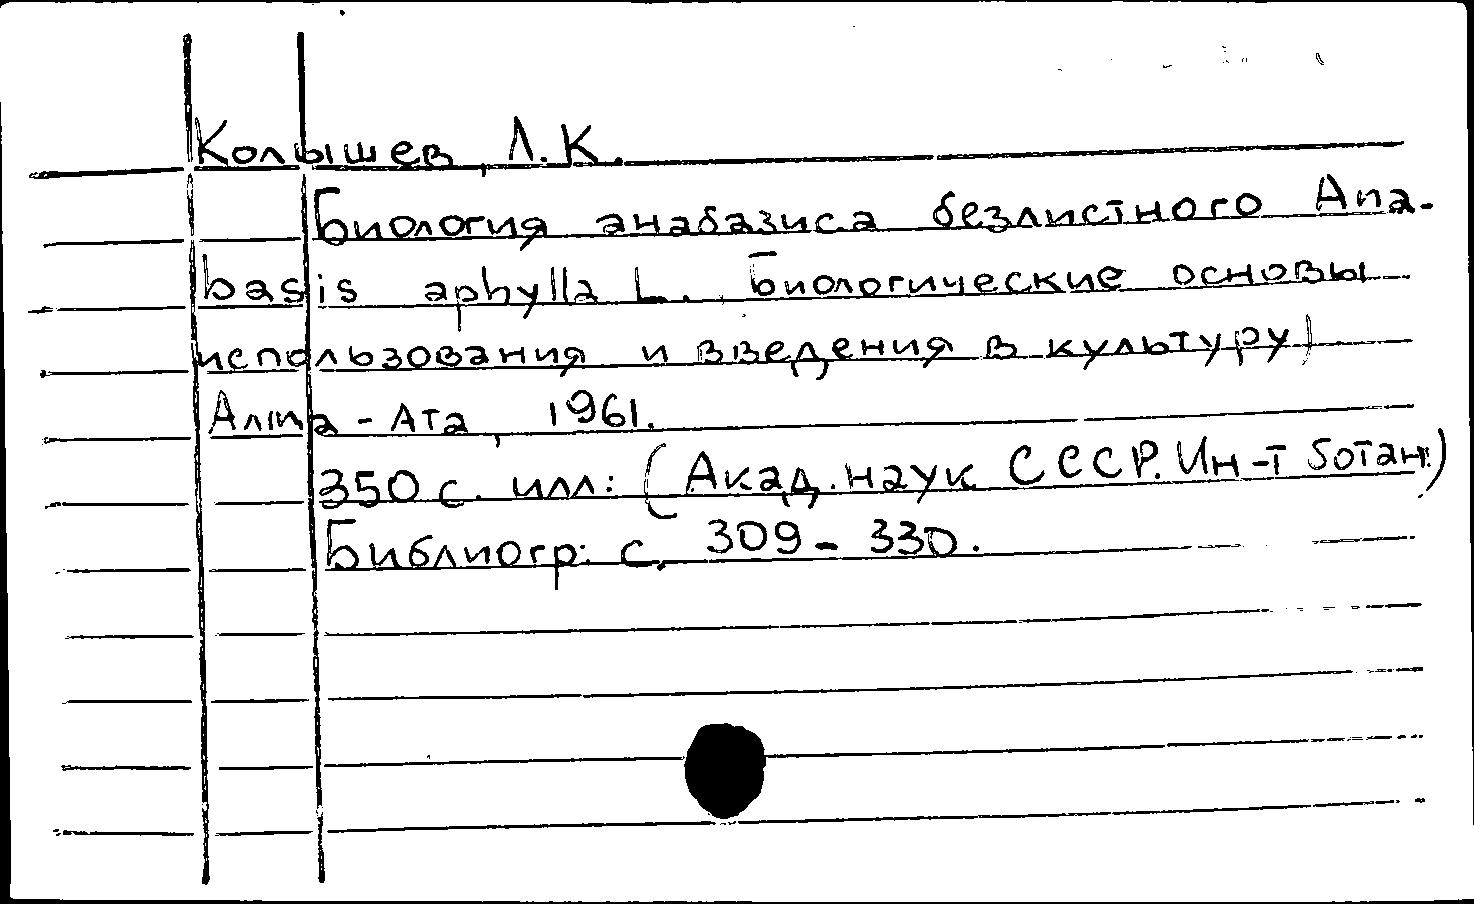 Колышев, Л.К.
Биология анабазиса безлистного Ana-
basis aphylla L. Биологические основы
использования и введения в культуру)
Алма-Ата, 1961.
350 с. илл: (Акад. наук СССР. Ин-т ботан.)
Библиогр: с. 309-330.